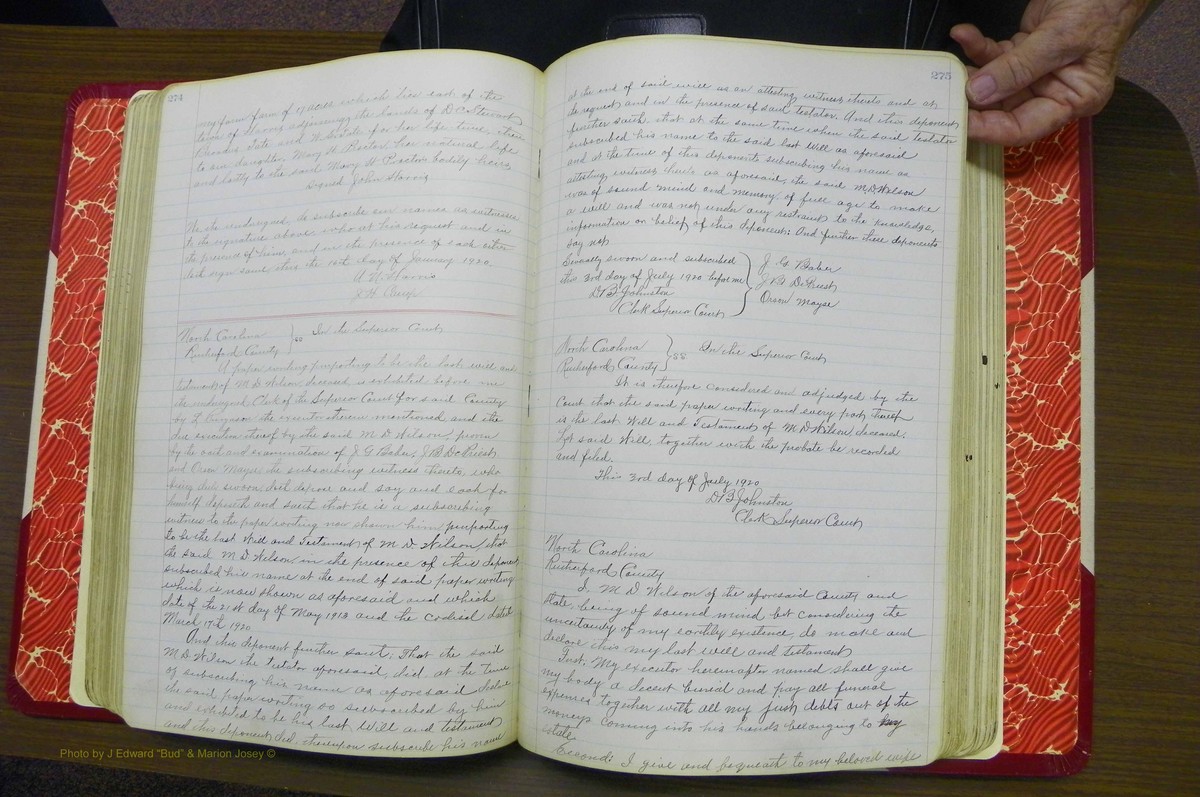 274
my farm farm of 17 acres which lies east of the
lands of D C Stewart
Tate and for her life time, then
to our daughter Mary H. Proctor her natural life
and lastly to the said Mary H Proctor bodily heirs
Signed John Harris
We the undersigned do subscribe our names as witnesses
to the signature above who at his request and in
the presence of him, and in the presence of each other
doth sign same this the 10th day of January 1920.
A W Harris
J. H.
North Carolina
Rutherford County } ss In the Superior Court
A paper writing purporting to be the last will and
testament of M. D Wilson deceased is exhibited before me
the undersigned Clerk of the Superior Court for said County
by the therein mentioned and the
due execution thereof by the said M. D Wilson, proven
by the oath and examination of J. G Baker, J. B DePriest
and Orson Mayse the subscribing witness thereto, who
being duly sworn doth depose and say and each for
himself deposeth and saith that he is a subscribing
witness to the paper writing now shown him purporting
to be the last Will and Testament of M. D. Wilson, that
the said M. D Wilson in the presence of this deponent
subscribed his name at the end of said paper writing
which is now shown as aforesaid and which
date of the 21st day of May 1913 and the codicil dated
March 17th 1920
And this deponent further saith: That the said
M. D Wilson the testator aforesaid, did at the time
of subscribing his name as aforesaid declare
the said paper writing so subscribed by him
and exhibited to be his last Will and testament
and this deponent did, thereupon subscribe his name
275
at the end of said will as an attesting witness thereto and at
the request and in the presence of said testator. And this deponent
further saith, that at the same time when the said testator
subscribed his name to the said last Will as aforesaid
and at the time of this deponents subscribing his name as
attesting witness thereto as aforesaid, the said M.D. Wilson
was of sound mind and memory, of full age to make
a will and was not under any restraint to the knowledge,
information or belief of this deponent: And further these deponents
say not
Severally sworn and subscribed
this 3rd day of July 1920 before me
D. B. Johnston
Clerk Superior Court
J. G. Baker
J B DePriest
Orson Mayse
North Carolina
Rutherford County } ss. In the Superior Court
It is therefore considered an adjudged by the
Court that the said paper writing and every part thereof
is the last Will and Testament of M. D Wilson, deceased.
Let said Will, together with the probate be recorded
and filed.
This 3rd day of July 1920
D. B Johnston
Clerk Superior Court
North Carolina
Rutherford County
I, M. D Wilson of the aforesaid County and
State, being of sound mind but considering the
uncertainty of my earthly existence, do make and
declare this my last will and testament
First: My executor hereinafter named shall give
my body a decent buried and pay all funeral
expenses together with all my just debts out of the
moneys coming into his hands belonging to my
estate.
Second: I give and bequeath to my beloved wife
Photo by J Edward "Bud" & Marion Josey ©